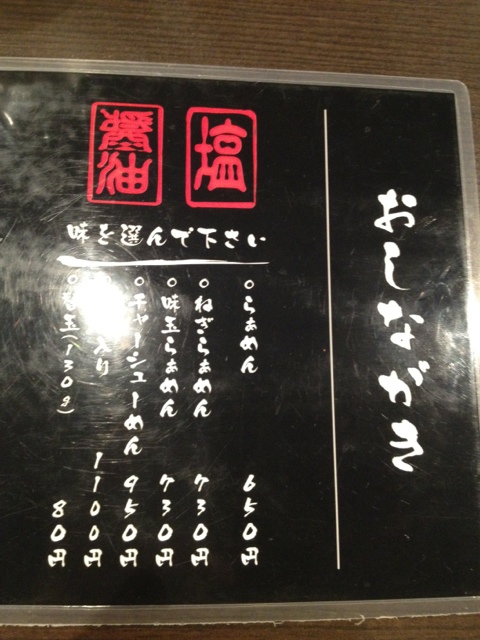 おしながき
塩
醤油
味を選んで下さい
○らぁめん 650円
○ねぎらぁめん 730円
○味玉らぁめん 730円
○チャーシューめん 950円
入り 1100円
○替玉(130g) 80円